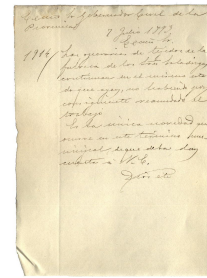 Gobernador Civil de la
Provincia
1914 Los operarios de tejidos de la
fabrica de los
continuan en el mismo esta
do que ayer, no habiendo por
consiguiente reanudado el
trabajo
Es la única novedad que
ocurre en este término mu
nicipal de que debo dar
cuenta á V.E.
Dios etc